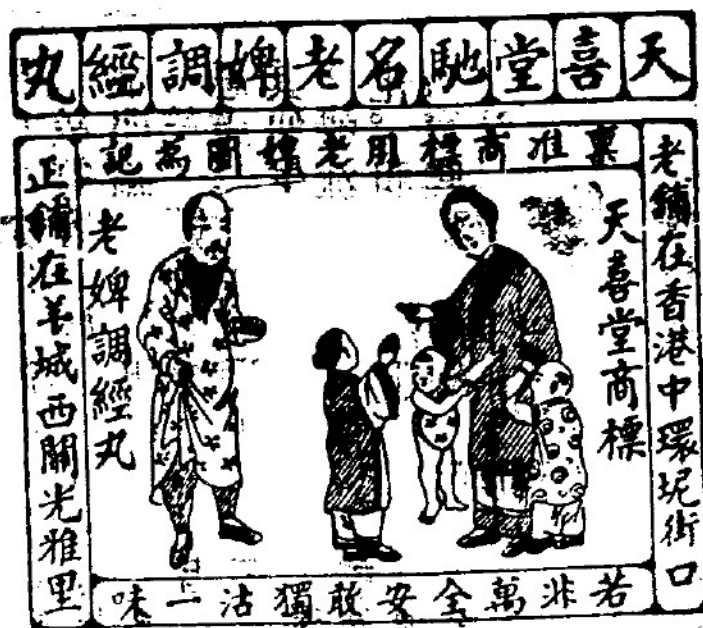 天喜堂馳名老婢調經丸
稟准商標用老婢圖為記
老鋪在香港中環坭街口
天喜堂商標
老婢調經丸
正鋪在羊城西關光雅里
若非萬全安敢獨沽一味